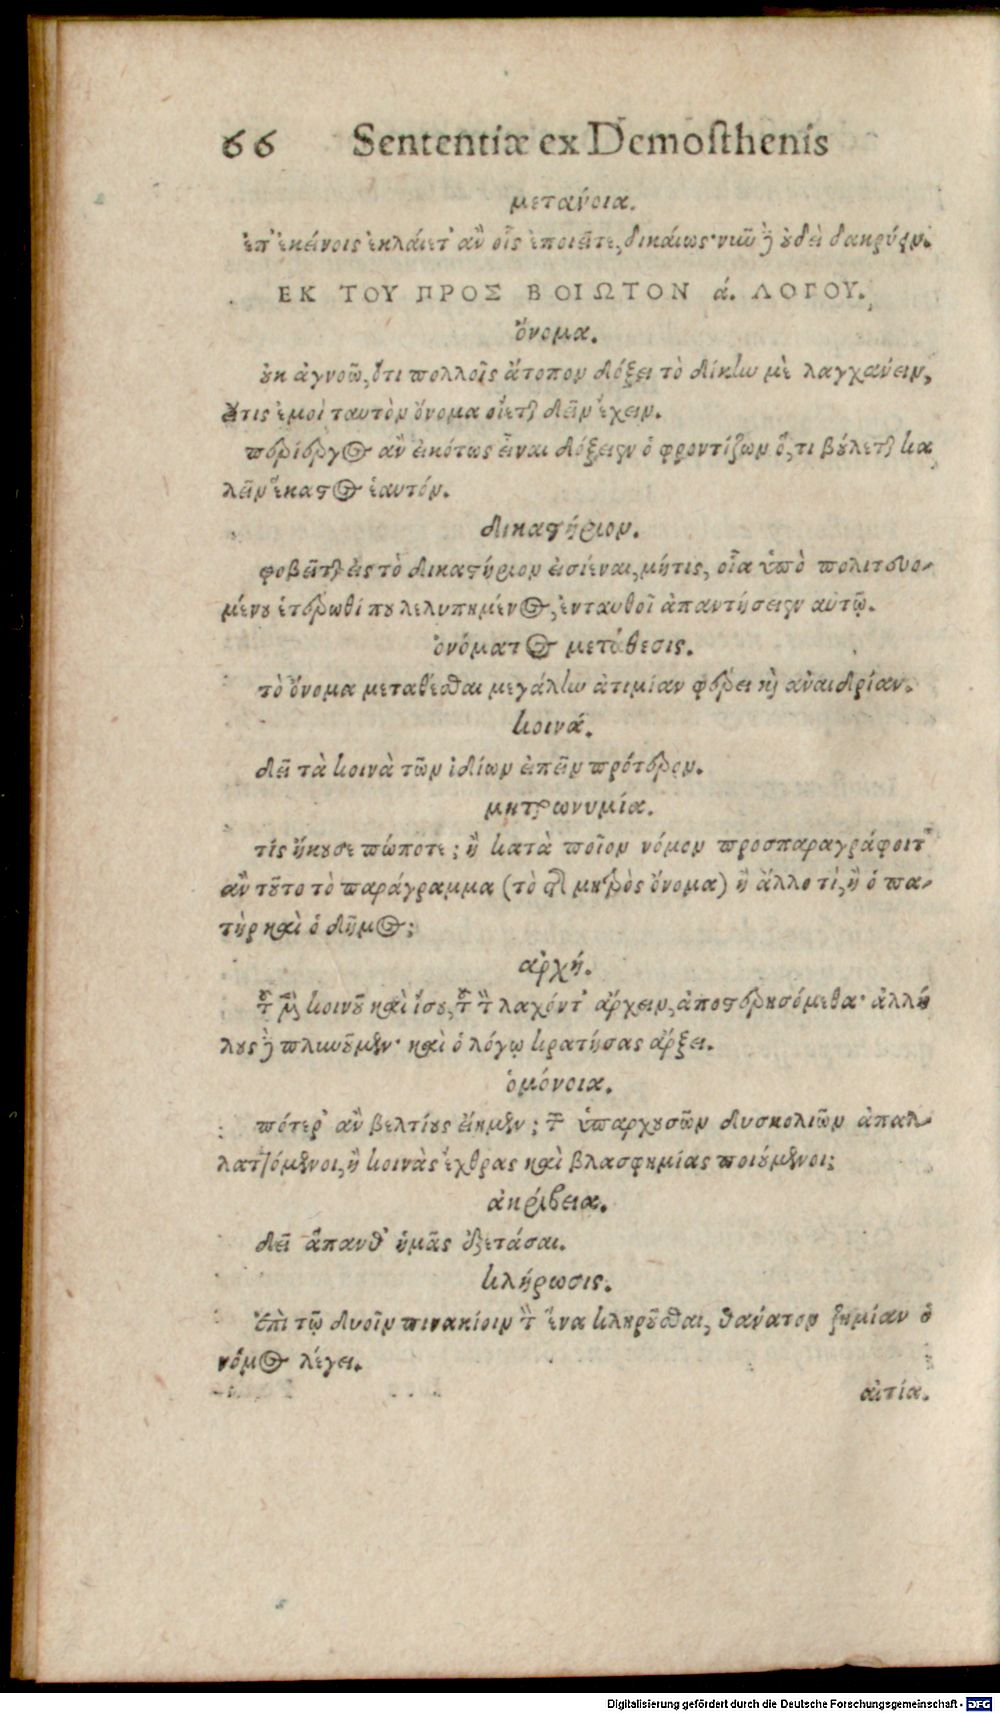 66 Sententiæ ex Demosthenis
μετάνοια.
ἐπ' ἐκείνοις ἐκλάιετ' ἂν οἷς ἐποιεῖτε, δικαίως· νιῦ ἢ ὐδεὶ δακρύων.
ΕΚ ΤΟΥ ΠΡΟΣ ΒΟΙΩΤΟΝ ά. ΛΟΓΟΥ.
ὄνομα.
ὐκ ἀγνοῶ, ὅτι πολλοῖς ἄτοπον δόξει τὸ δίκην μὲ λαγχάνειν,
ὅτις ἐμοὶ ταυτὸν ὄνομα οἴεται δεῖν ἔχειν.
περίεργος ἂν εἰκότως εἶναι δόξειεν ὁ φροντίζων ὅ, τι βύλεται κα
λεῖν ἕκαστος ἑαυτόν.
δικαστήριον.
φοβεῖται εἰς τὸ δικαστήριον εἰσιέναι, μήτις, οἷα ὑπὸ πολιτευο-
μένου ἑτέρωθί που λελυπημένος, ἐνταυθοῖ ἀπαντήσειεν αὐτῷ.
ὀνόματος μετάθεσις.
τὸ ὄνομα μεταθέσθαι μεγάλην ἀτιμίαν φέρει καὶ ἀναιδρίαν.
κοινά.
δεῖ τὰ κοινὰ τῶν ἰδίων εἰπεῖν πρότερον.
μητρωνυμία.
τίς ἤκουσε πώποτε; ἢ κατὰ ποῖον νόμον προσπαραγράφοιτ'
ἂν τοῦτο τὸ παράγραμμα (τὸ τῆς μητρὸς ὄνομα) ἢ ἄλλο τὶ, ἢ ὁ πα-
τὴρ καὶ ὁ δῆμος;
ἀρχή.
τοῦ μὲν κοινοῦ καὶ ἴσου, τοῦ τὸν λαχόντ' ἄρχειν, ἀποστερησόμεθα· ἀλλή
λους δὲ πλυνοῦμεν· καὶ ὁ λόγῳ κρατήσας ἄρξει.
ὁμόνοια.
πότερ' ἂν βελτίους εἴημεν; τῶν ὑπαρχουσῶν δυσκολιῶν ἀπαλ-
λαττόμενοι, ἢ κοινὰς ἔχθρας καὶ βλασφημίας ποιούμενοι;
ἀκρίβεια.
δεῖ ἅπανθ' ὑμᾶς ἐξετάσαι.
κλήρωσις.
ἐπὶ τῷ δυοῖν πινακίοιν τὸν ἕνα κληροῦσθαι, θάνατον ζημίαν ὁ
νόμος λέγει.
αἰτία.
Digitalisierung gefördert durch die Deutsche Forschungsgemeinschaft - DFG